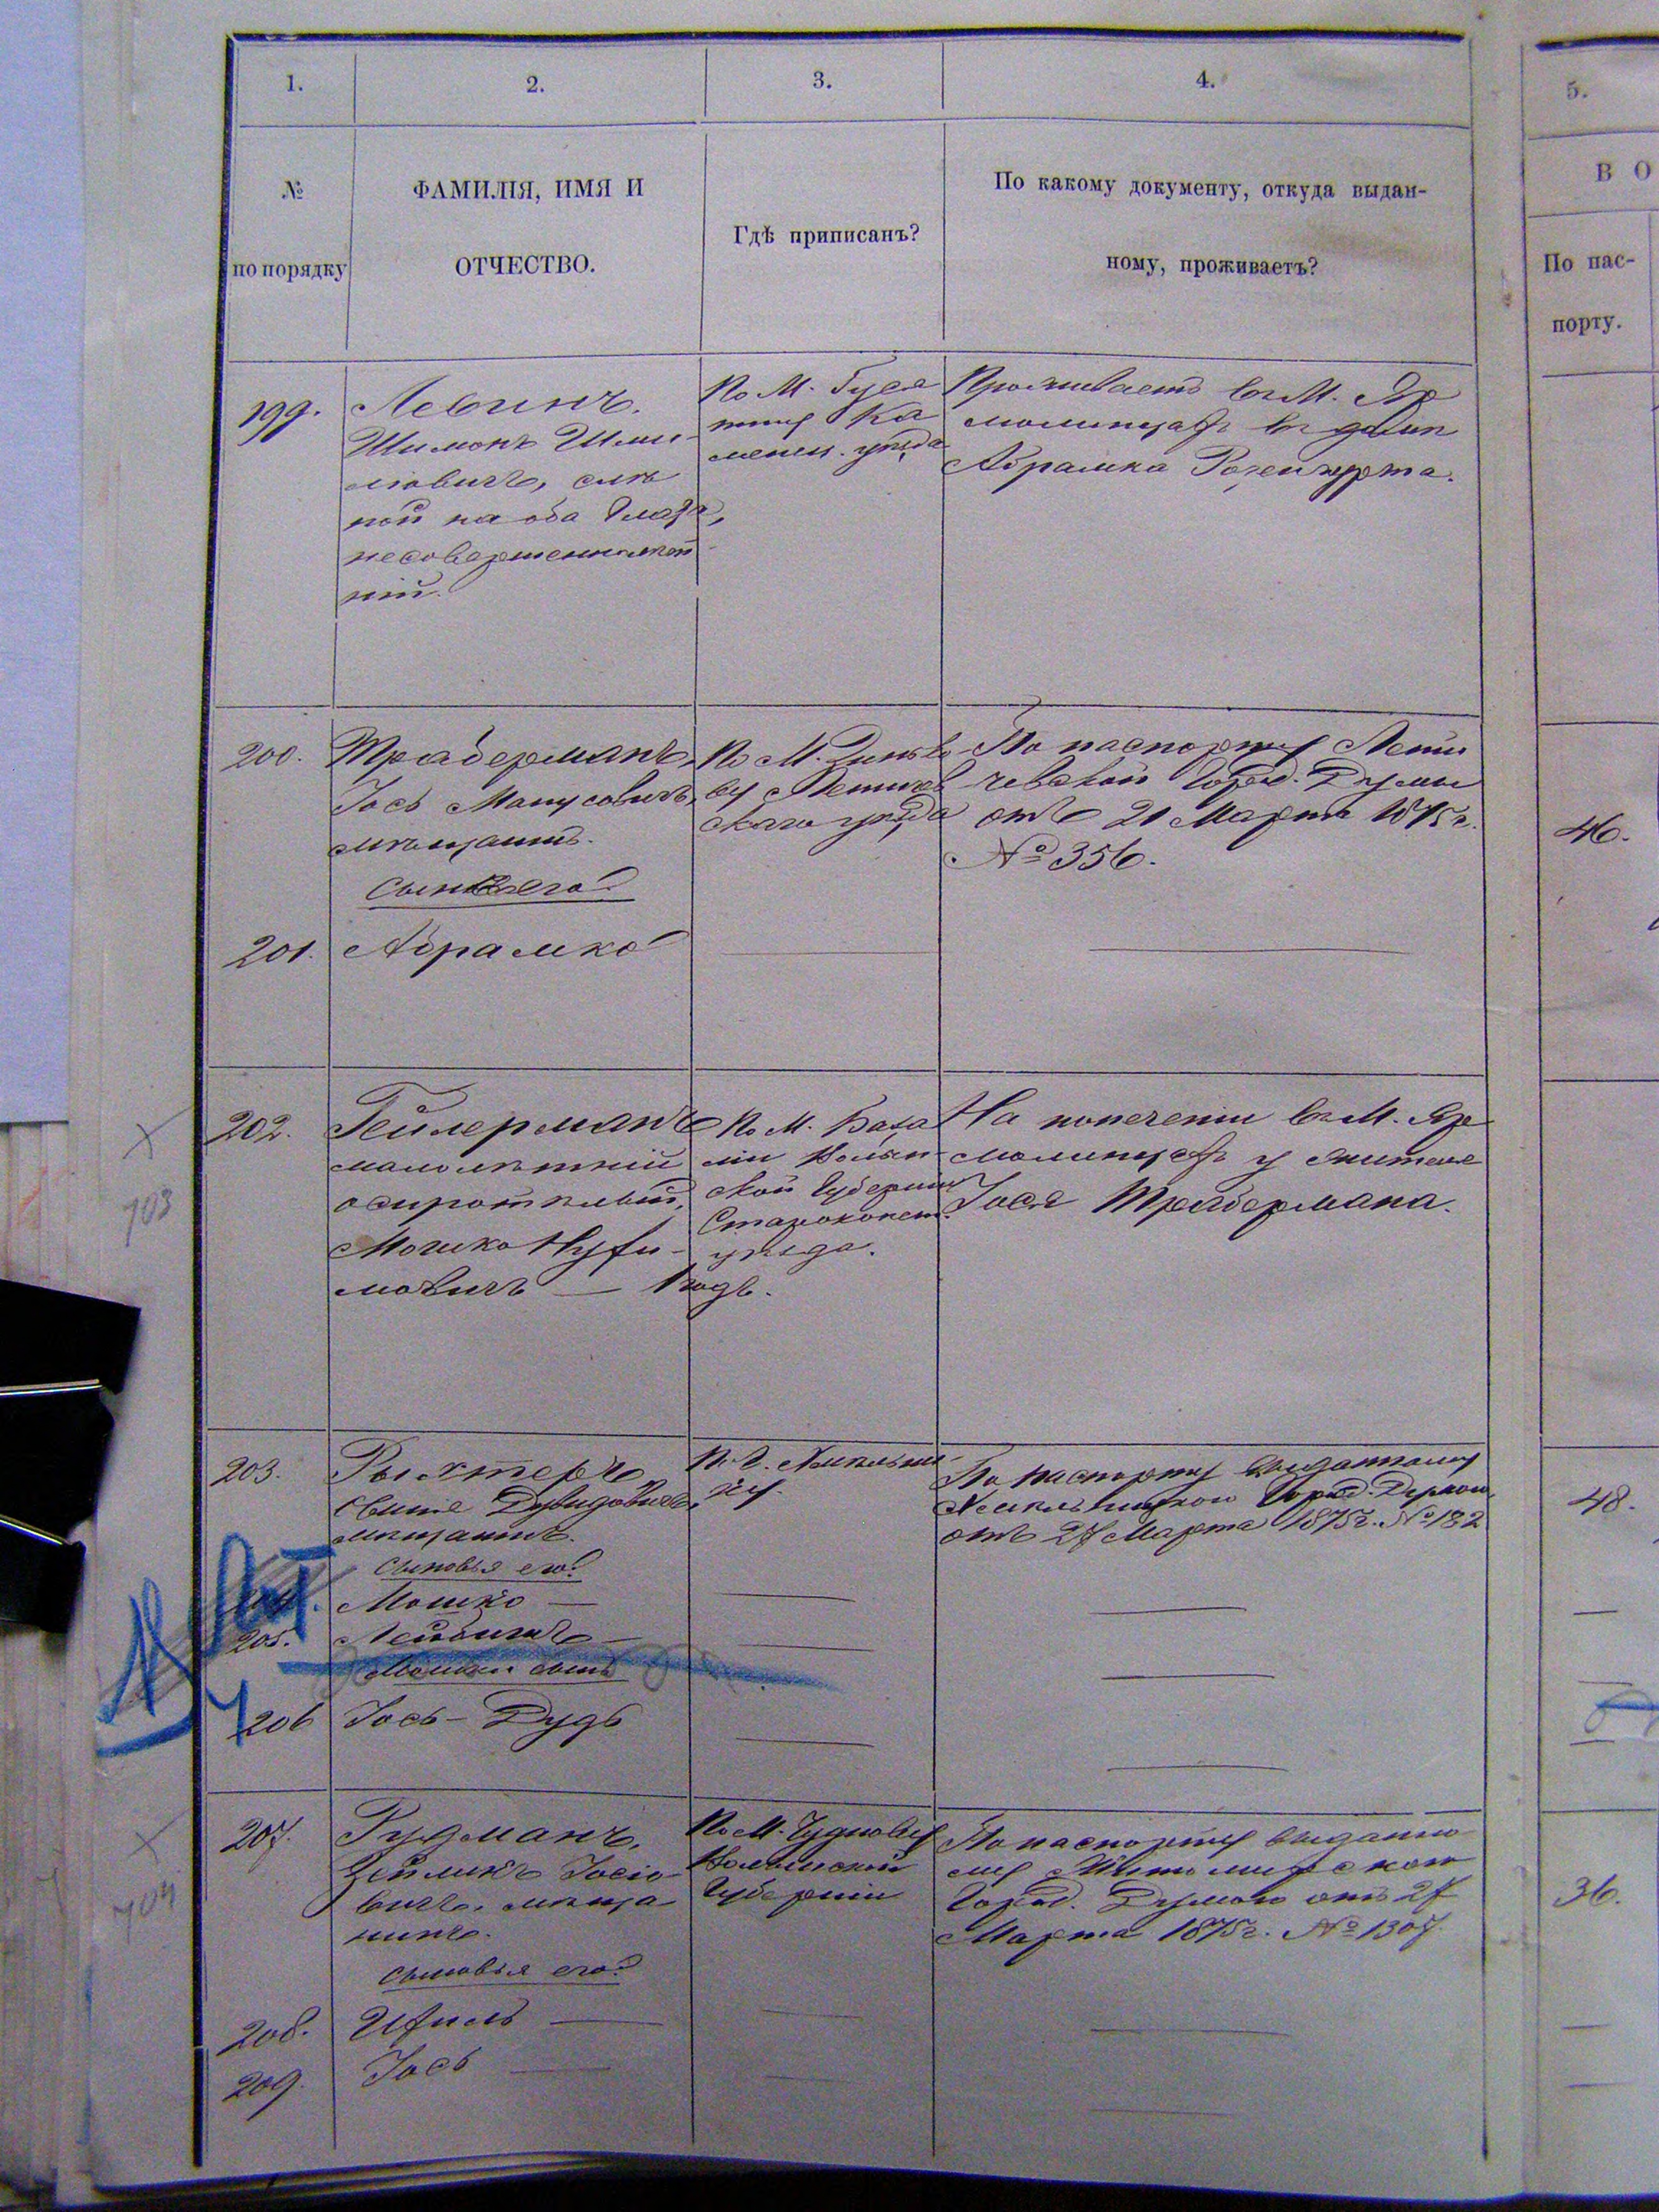 1.
2.
3.
4.
5.
№
по порядку
ФАМИЛІЯ, ИМЯ И
ОТЧЕСТВО.
Гдѣ приписанъ?
По какому документу, откуда выдан-
ному, проживаетъ?
В О
По пас-
порту.
199.
Левинъ.
Шимонъ Шми-
ліовичъ, слѣ
пой на оба глаза,
несовершеннолѣт
ній.
По М. Гуся
тину Ка
менец. уѣзда
Проживаетъ въ М. Яр
молинцахъ въ домѣ
Абрамка
200.
Трабберманъ,
Іось Манусовичъ,
мѣщанинъ.
Сынъ его:
По М. Зинько
ву Летичев
скаго уѣзда
По паспорту Лети
чевской Город. Думы
отъ 21 Марта 1875 г.
№ 356.
46.
201.
Абрамко
202.
Гейлерманъ
малолѣтній
осиротѣлый,
Мошко Нухи-
мовичъ — 1 годъ.
По М. База
ліи Волын-
ской Губерніи
Староконст.
уѣзда.
На попеченіи въ М. Яр
молинцахъ у жителя
Іося Трабермана.
103
203.
Рыхтеръ
Дувидовичъ,
мѣщанинъ.
Сыновья его:
По паспорту выданному
Город. Думою
отъ 27 Марта 1875 г. № 182
48.
Мошко —
205.
Лейбишъ —
Мошки сынъ
206
Іось-Дудъ
207.
Рудманъ,
Зейликъ Іосіо-
вичъ, мѣща-
нинъ.
Сыновья его:
По М. Чуднову
Волынской
Губерніи
По паспорту выданно
му Житомирскою
Город. Думою отъ 27
Марта 1875 г. № 1307.
36.
104
208.
Ихиль —
209.
Іось —